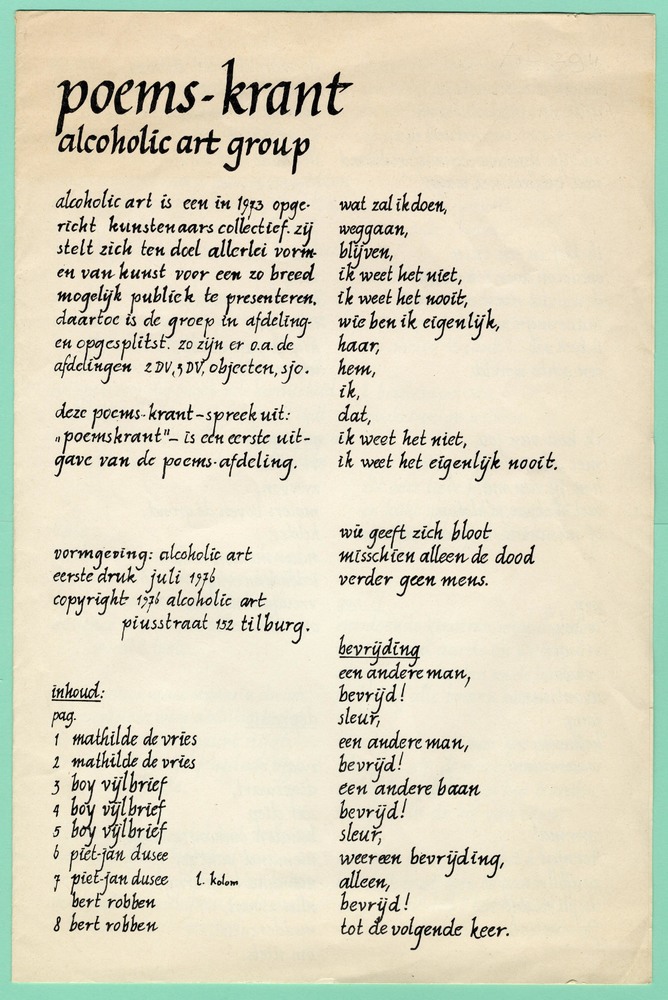 poems-krant
alcoholic art group
alcoholic art is een in 1973 opge-
richt kunstenaars collectief. zij
stelt zich ten doel allerlei vorm-
en van kunst voor een zo breed
mogelijk publiek te presenteren.
daartoe is de groep in afdeling-
en opgesplitst. zo zijn er o.a. de
afdelingen 2DV, 3DV, objecten, sjo.
deze poems-krant-spreek uit:
„poemskrant"- is een eerste uit-
gave van de poems-afdeling.
vormgeving: alcoholic art
eerste druk juli 1976
copyright 1976 alcoholic art
piusstraat 152 tilburg.
inhoud:
pag.
1 mathilde de vries
2 mathilde de vries
3 boy vijlbrief
4 boy vijlbrief
5 boy vijlbrief
6 piet-jan dusee
7 piet-jan dusee l. kolom
bert robben
8 bert robben
wat zal ik doen,
weggaan,
blijven,
ik weet het niet,
ik weet het nooit,
wie ben ik eigenlijk,
haar,
hem,
ik,
dat,
ik weet het niet,
ik weet het eigenlijk nooit.
wie geeft zich bloot
misschien alleen de dood
verder geen mens.
bevrijding
een andere man,
bevrijd!
sleur,
een andere man,
bevrijd!
een andere baan
bevrijd!
sleur,
weer een bevrijding,
alleen,
bevrijd!
tot de volgende keer.